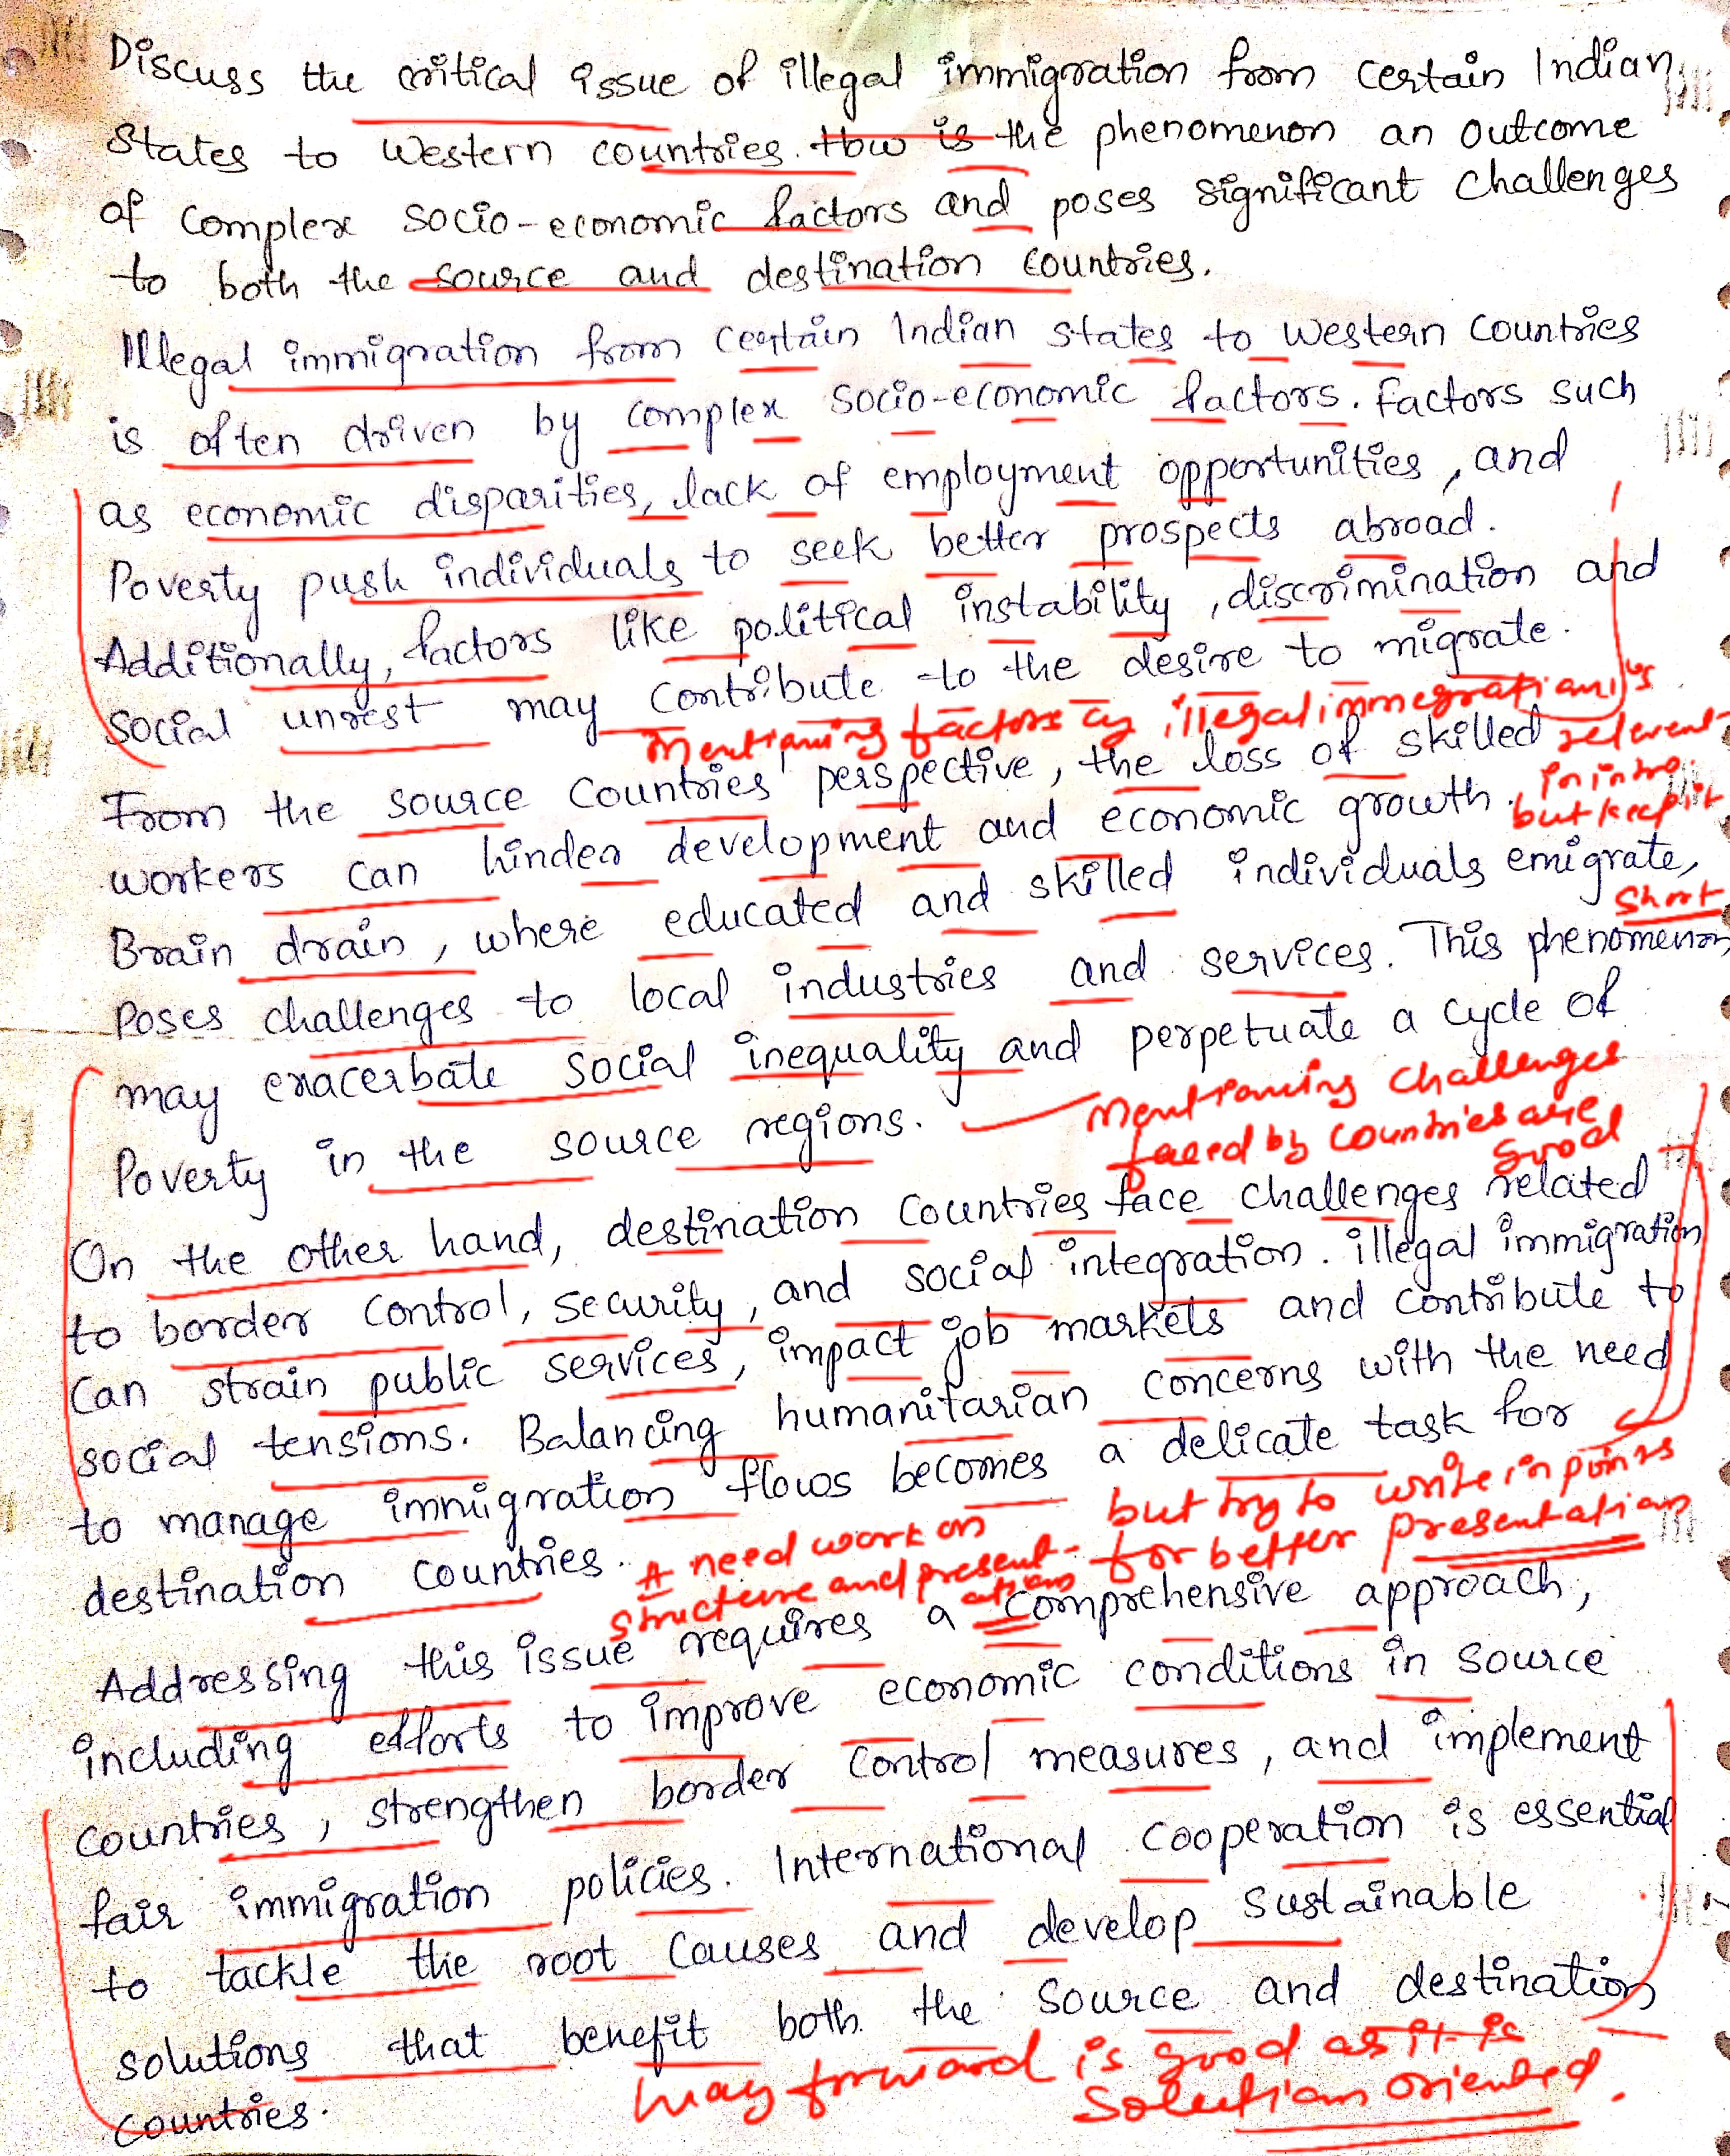 Discuss the critical issue of illegal immigration from certain Indian
States to Western countries. How is the phenomenon an outcome
of complex socio-economic factors and poses significant challenges
to both the source and destination countries.
Illegal immigration from certain Indian states to western countries
is often driven by complex socio-economic factors. Factors such
as economic disparities, lack of employment opportunities, and
Poverty push individuals to seek better prospects abroad.
Additionally, factors like political instability, discrimination and
social unrest may contribute to the desire to migrate.
Mentioning factors of illegal immegration is
relevent
in intro.
but keep it
short
From the source countries' perspective, the loss of skilled
workers can hinder development and economic growth.
Brain drain, where educated and skilled individuals emigrate,
Poses challenges to local industries and services. This phenomenon
may exacerbate social inequality and perpetuate a cycle of
Poverty in the source regions.
Mentioning challenges
faced by countries are
good
On the other hand, destination countries face challenges related
to border control, security, and social integration. illegal immigration
Can strain public services, impact job markets and contribute to
social tensions. Balancing humanitarian concerns with the need
to manage immigration flows becomes a delicate task for
destination countries.
but try to write in points
for better presentation
A need work on
structure and present-
ation
Addressing this issue requires a comprehensive approach,
including efforts to improve economic conditions in source
countries, strengthen border control measures, and implement
fair immigration policies. International cooperation is essential
to tackle the root causes and develop sustainable
solutions that benefit both the source and destination
countries.
Way forward is good as it is
solution oriented.